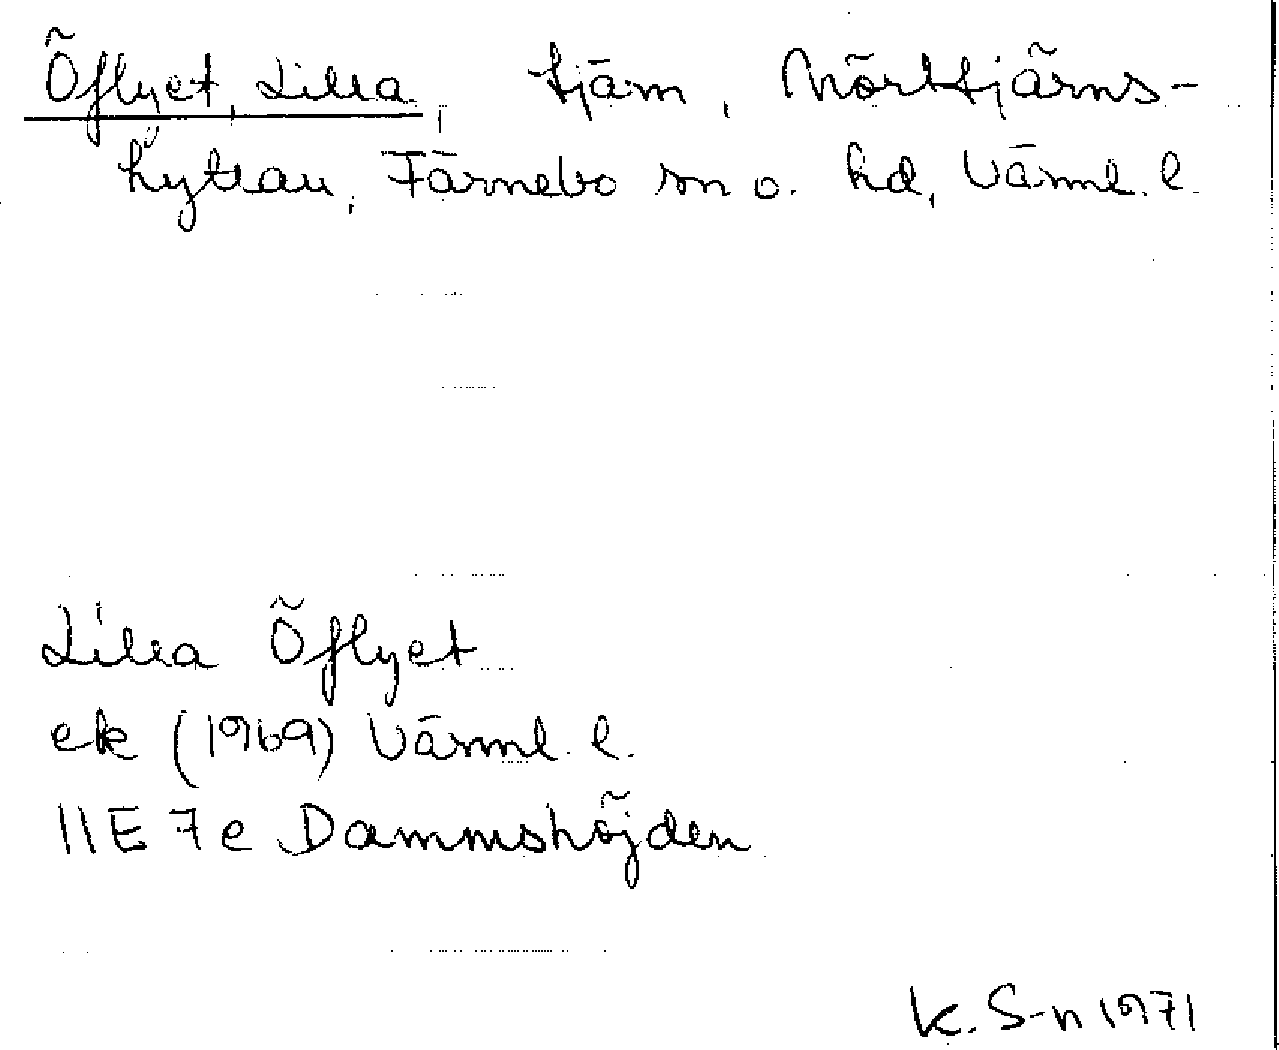 Öflyet, Lilla, tjärn, Mörttjärns-
hyttan, Färnebo sn o. hd, Värml. l.
Lilla Öflyet
ek (1969) Värml. l.
11E 7e Dammshöjden
K. S-n 1971